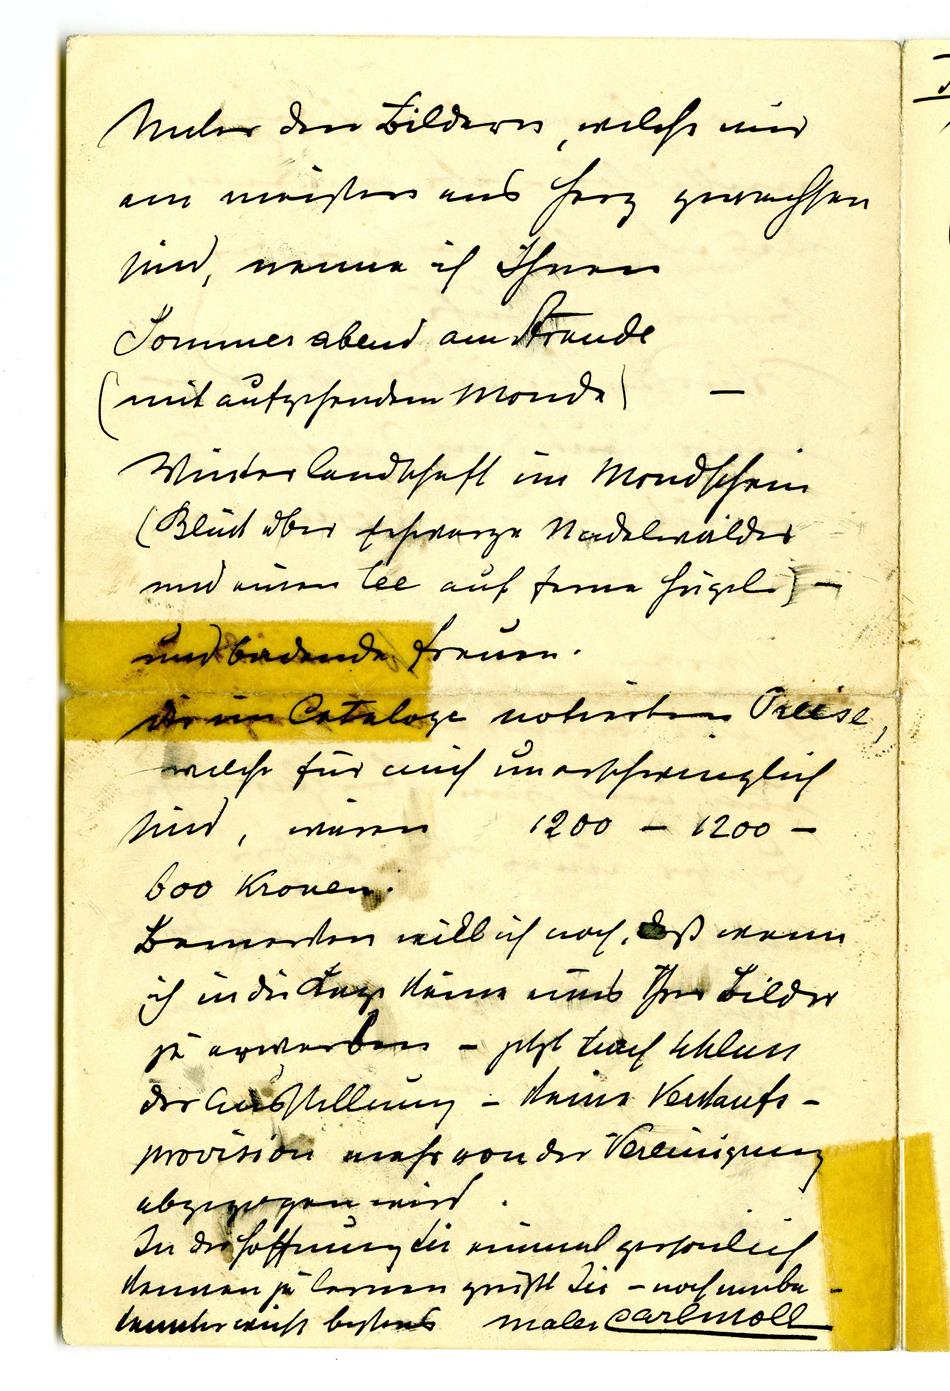 Unter den Bildern, welche mir
am meisten ans Herz gewachsen
sind, nenne ich Ihnen
Sommerabend am Strande
(mit aufgehendem Monde) –
Winterlandschaft im Mondschein
(Blick über schwarze Nadelwälder
und einen See auf ferne Hügel) –
und badende Frauen.
die im Cataloge notierten Preise,
welche für mich unerschwinglich
sind, waren 1200 – 1200 –
600 Kronen.
Bemerken will ich noch, daß wenn
ich in die Lage käme eines Ihrer Bilder
zu erwerben – jetzt nach Schluss
der Ausstellung – keine Verkaufs-
provision mehr von der Vereinigung
abgezogen wird.
In der Hoffnung Sie einmal persönlich
kennen zu lernen grüßt Sie – noch unbe-
kannter weise bestens Maler Carl Moll